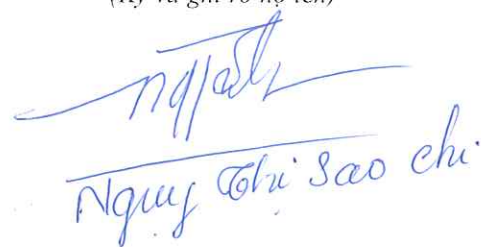 (Ký và ghi rõ họ tên)
Ngụy Thị Sao Chi